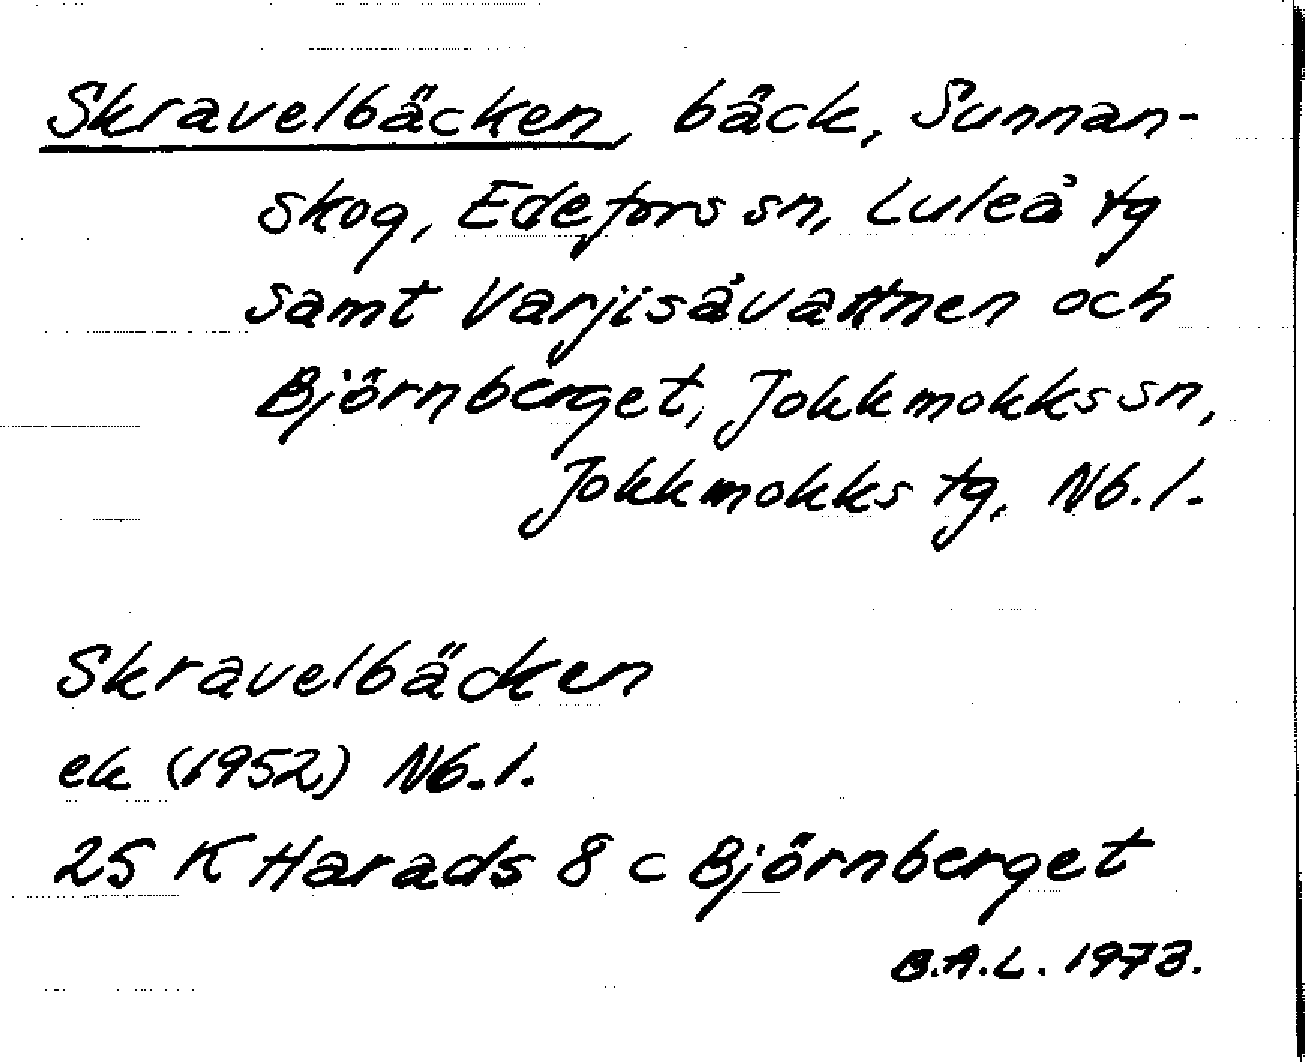 Skravelbäcken, bäck, Sunnan-
skog, Edefors sn, Luleå tg
samt Varjisåvattnen och
Björnberget, Jokkmokks sn,
Jokkmokks tg, Nb. l.
Skravelbäcken
ek (1952) Nb. l.
25 K Harads 8 c Björnberget
B.A.L. 1973.